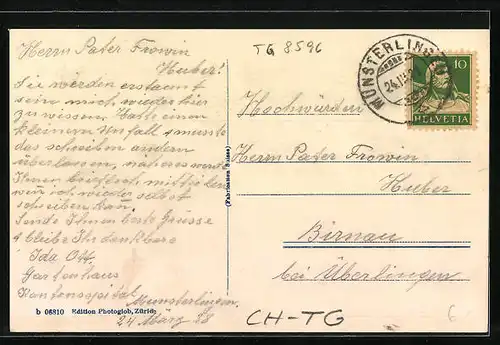 Herrn Pater Frowin
Huber!
Sie werden erstaunt
sein mich wieder hier
zu wissen. Hatte einen
kleinen Unfall & musste
das schreiben andern
überlassen, näheres werde
Ihnen brieflich mitteilen
wenn ich wieder selbst
schreiben kann.
Sende Ihnen beste Grüsse
& bleibe Ihr dankbare
Ida Ott
Gartenhaus
Kantonsspital
Münsterlingen
24 März
b 06810 Edition Photoglob, Zürich
TG 8596
MÜNSTERLINGEN
10
HELVETIA
Hochwürden
Herrn Pater Frowin
Huber
Birnau
bei Überlingen
CH-TG
6